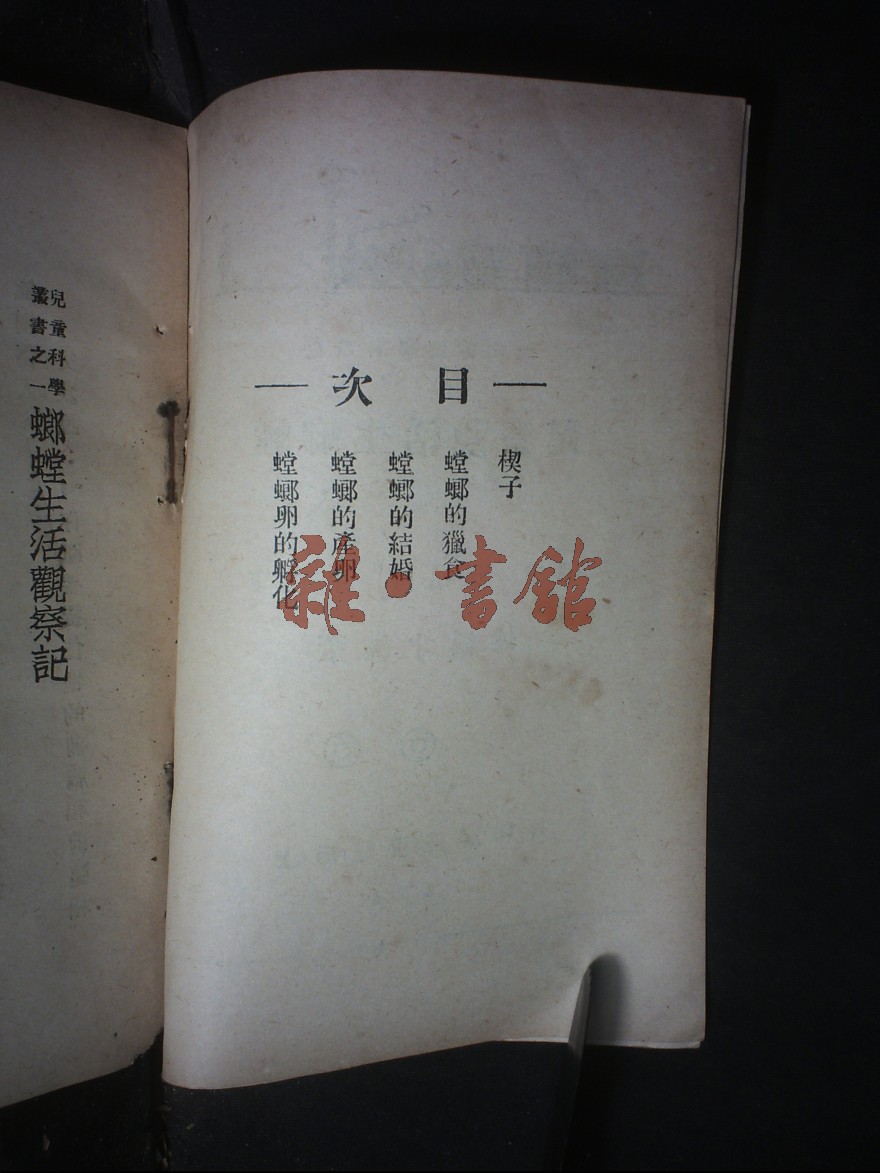 目次
楔子
螳螂的獵食
螳螂的結婚
螳螂的產卵
螳螂卵的孵化
雜·書館
兒童科學
叢書之一
螂螳生活觀察記